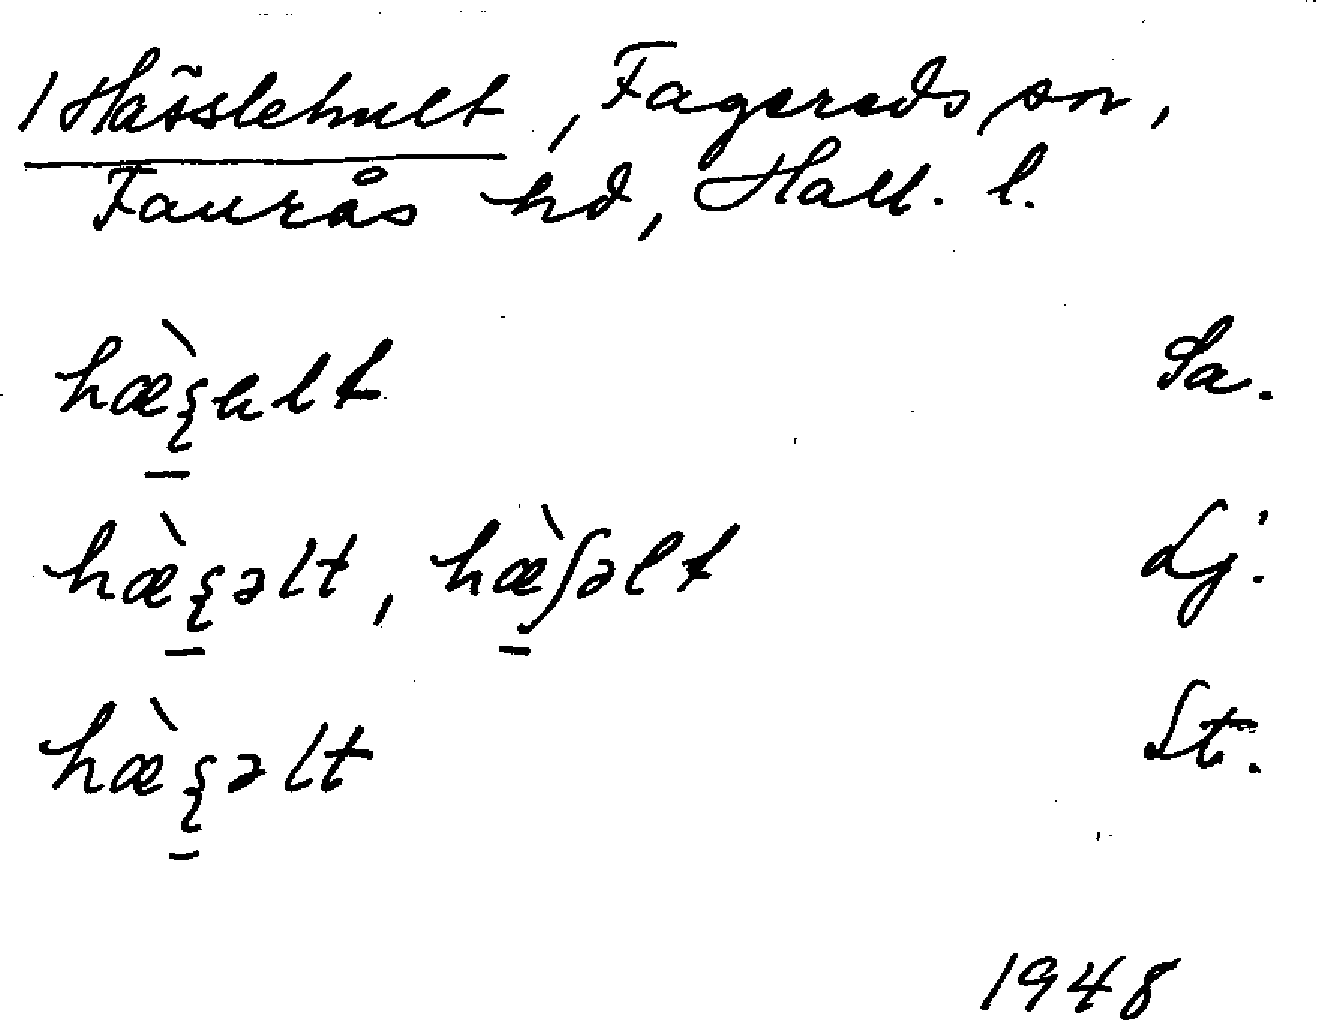 1 Hässlehult, Fagereds sn,
Faurås hd, Hall. l.
hæ̀ꞔult Sa.
hæ̀ꞔəlt, hæ̀ʃəlt Lj.
hæ̀ꞔəlt St.
1948